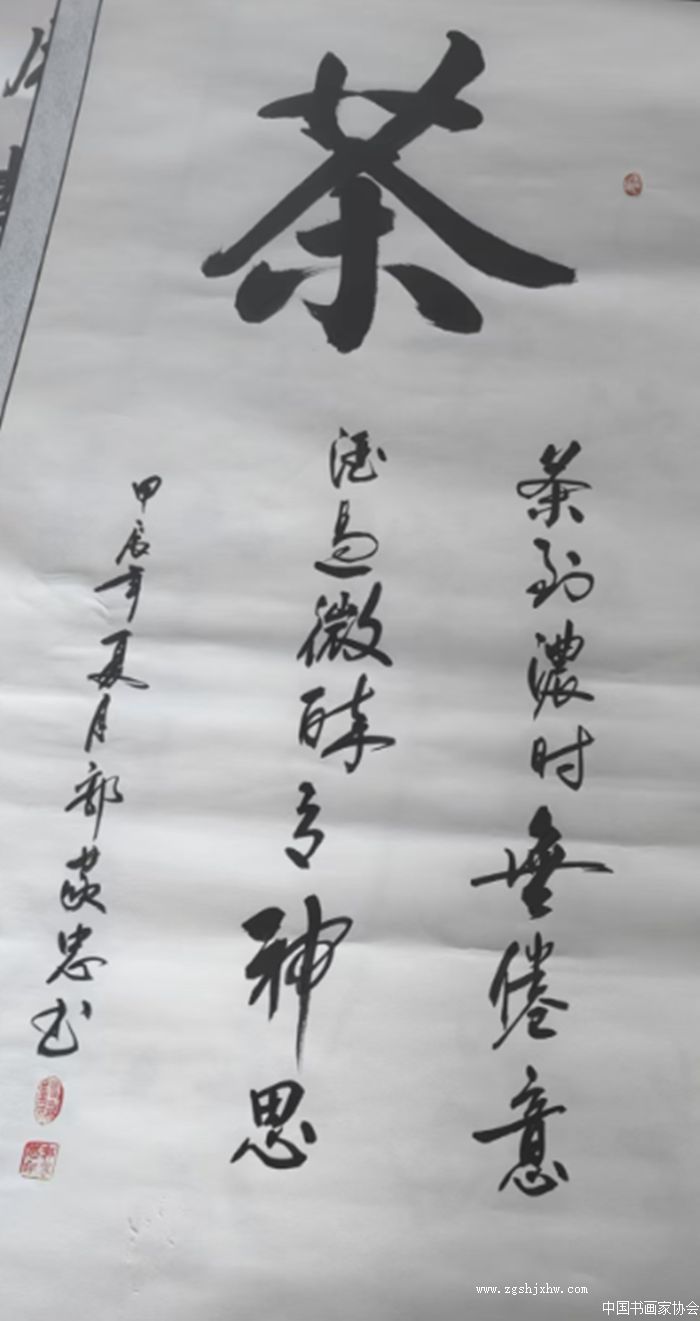 茶
茶到濃时無倦意
酒過微醉有神思
甲辰年夏月郭茂忠书
www.zgshjxhw.com
中国书画家协会